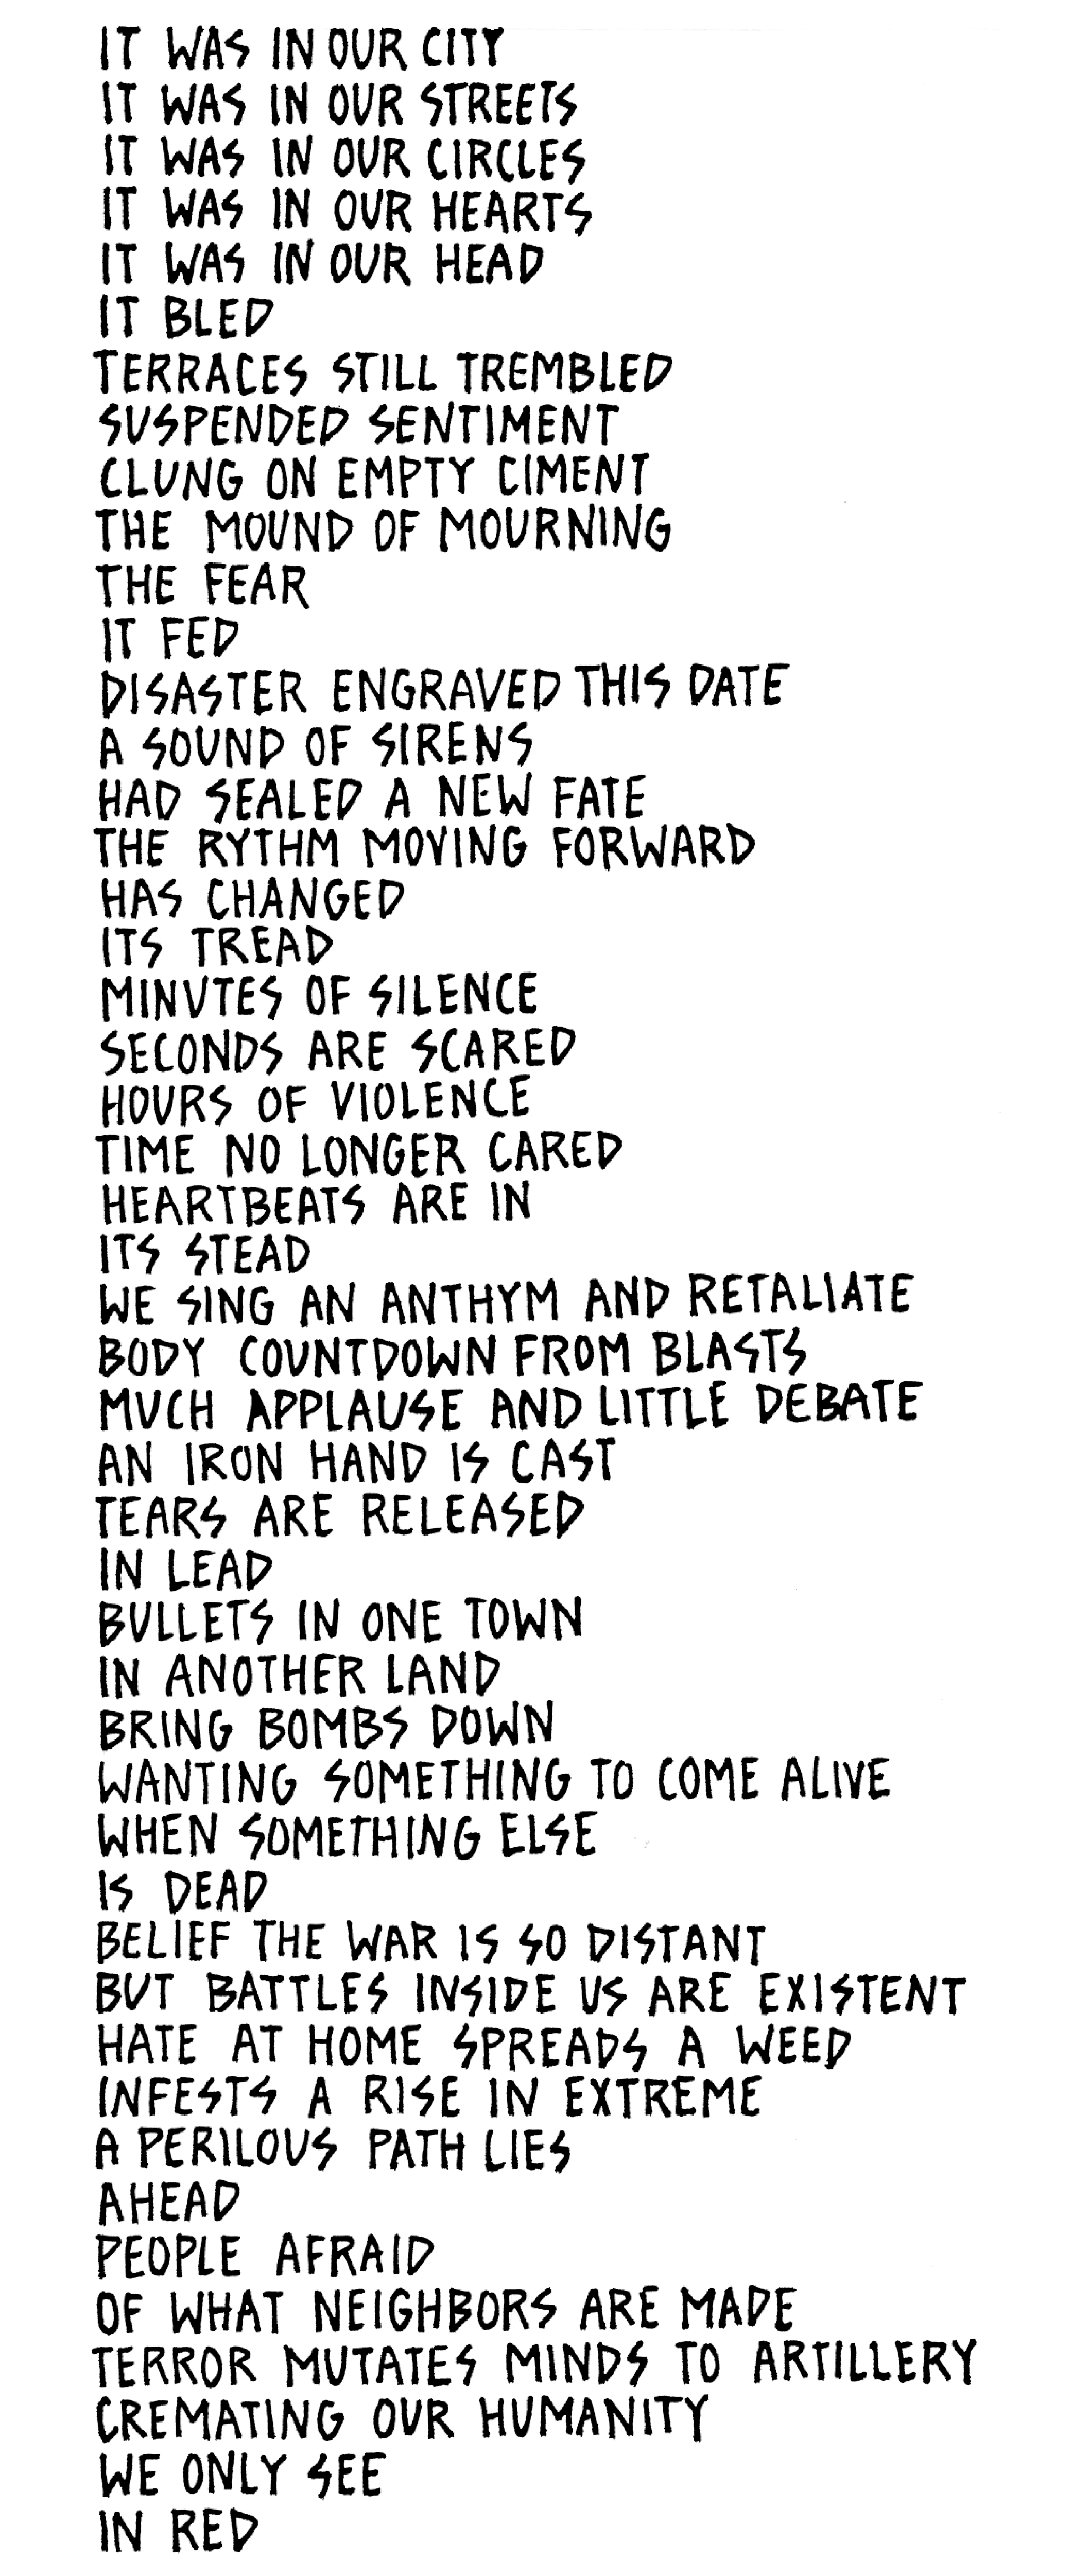 IT WAS IN OUR CITY
IT WAS IN OUR STREETS
IT WAS IN OUR CIRCLES
IT WAS IN OUR HEARTS
IT WAS IN OUR HEAD
IT BLED
TERRACES STILL TREMBLED
SUSPENDED SENTIMENT
CLUNG ON EMPTY CIMENT
THE MOUND OF MOURNING
THE FEAR
IT FED
DISASTER ENGRAVED THIS DATE
A SOUND OF SIRENS
HAD SEALED A NEW FATE
THE RYTHM MOVING FORWARD
HAS CHANGED
ITS TREAD
MINUTES OF SILENCE
SECONDS ARE SCARED
HOURS OF VIOLENCE
TIME NO LONGER CARED
HEARTBEATS ARE IN
ITS STEAD
WE SING AN ANTHYM AND RETALIATE
BODY COUNTDOWN FROM BLASTS
MUCH APPLAUSE AND LITTLE DEBATE
AN IRON HAND IS CAST
TEARS ARE RELEASED
IN LEAD
BULLETS IN ONE TOWN
IN ANOTHER LAND
BRING BOMBS DOWN
WANTING SOMETHING TO COME ALIVE
WHEN SOMETHING ELSE
IS DEAD
BELIEF THE WAR IS SO DISTANT
BUT BATTLES INSIDE US ARE EXISTENT
HATE AT HOME SPREADS A WEED
INFESTS A RISE IN EXTREME
A PERILOUS PATH LIES
AHEAD
PEOPLE AFRAID
OF WHAT NEIGHBORS ARE MADE
TERROR MUTATES MINDS TO ARTILLERY
CREMATING OUR HUMANITY
WE ONLY SEE
IN RED